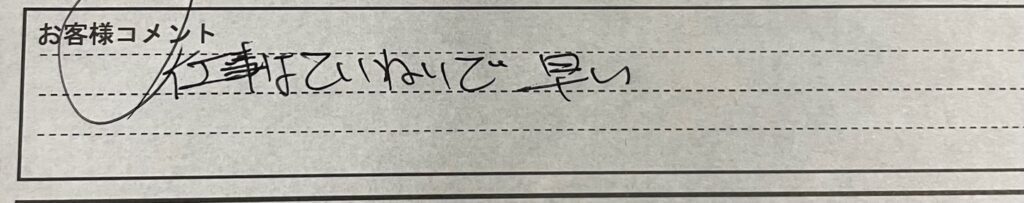 お客様コメント
仕事はていねいで 早い